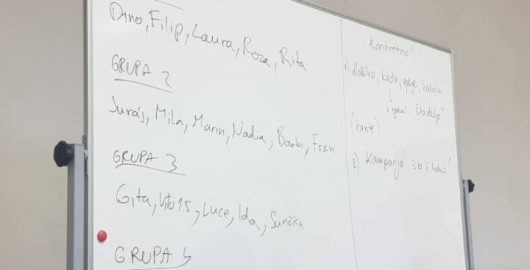 Dino, Filip, Laura, Roza, Rita
GRUPA 2
Juraj, Mila, Marin, Nadia, Barbi, Fran
GRUPA 3
Gita, Vito, Luce, Ida, Sunčica
GRUPA
Konkretno!!
1) Koliko, kada, gdje,
što dalje?
2) Kampanja, što i kako?